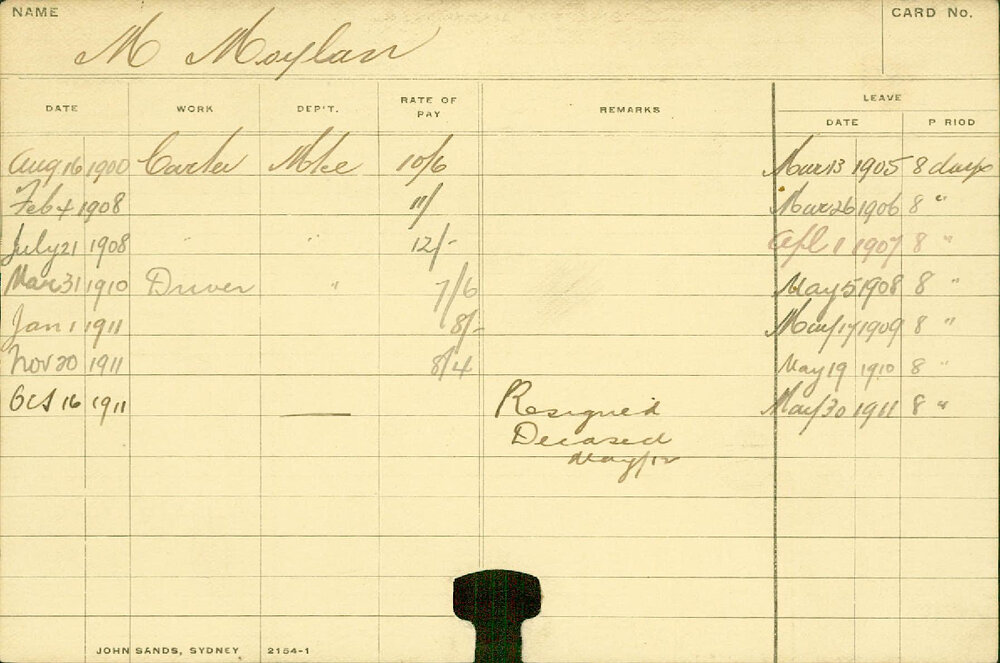 NAME CARD No.
M Moylan
DATE WORK DEP'T. RATE OF PAY REMARKS LEAVE
DATE P RIOD
Aug 16 1900 Carter Mkt 10/6 Mar 13 1905 8 days
Feb 4 1908 11/ Mar 26 1906 8 "
July 21 1908 " " 12/- Apl 1 1907 8 "
Mar 31 1910 Driver " 7/6 May 5 1908 8 "
Jan 1 1911 8/- May 17 1909 8 "
Nov 20 1911 8/4 May 19 1910 8 "
Oct 16 1911 — Resigned May 30 1911 8 "
Decased
May/12
JOHN SANDS, SYDNEY 2154-1